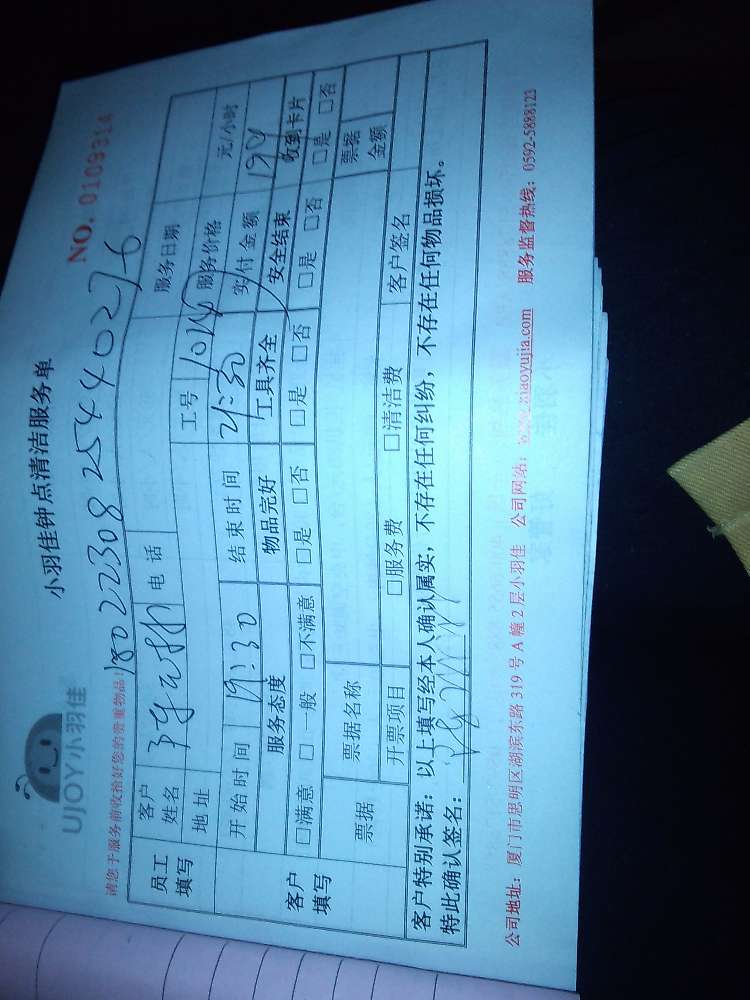 小羽佳钟点清洁服务单
UJOY小羽佳
NO. 0109914
请您于服务前收拾好您的贵重物品!
18022308254440276
员工填写
客户姓名
电话
服务日期
地址
工号
服务价格
元/小时
开始时间 19:30
结束时间 21:30
实付金额 198
客户填写
服务态度
物品完好
工具齐全
安全结束
收到卡片
□满意 □一般 □不满意
□是 □否
□是 □否
□是 □否
□是 □否
票据
票据名称
票据金额
开票项目
□服务费
□清洁费
客户签名
客户特别承诺:以上填写经本人确认属实,不存在任何纠纷,不存在任何物品损坏。
特此确认签名:
公司地址:厦门市思明区湖滨东路319号A幢2层小羽佳 公司网站:www.xiaoyujia.com 服务监督热线:0592-5888123